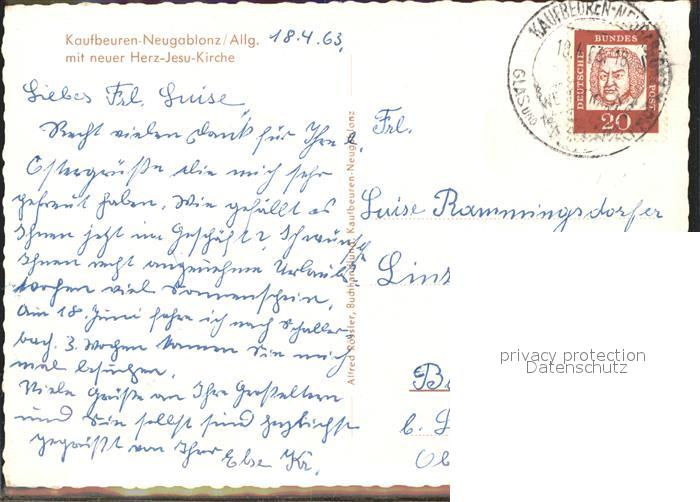 Kaufbeuren-Neugablonz/Allg.
mit neuer Herz-Jesu-Kirche
18.4.63.
Liebes Frl. Luise
Recht vielen Dank für Ihre l.
Ostergrüße die mich sehr
gefreut haben. Wie gefällt es
Ihnen jetzt im Geschäft? Ich wünsche
Ihnen recht angenehme Urlaubs
wochen viel Sonnenschein.
Am 18. Juni fahre ich nach Schaller
bach. 3 Wochen kommen Sie mich
mal besuchen.
Viele Grüße an Ihre Großeltern
und Sie selbst sind herzlichst
gegrüßt von Ihrer Else Kr.
Alfred Rössler, Buchhandlung, Kaufbeuren-Neugablonz
KAUFBEUREN-NEUGABLONZ
GLAS UND
DEUTSCHE BUNDES POST
20
Frl.
Luise Rammingsdorfer
Linz
B
b. L
Ob
privacy protection
Datenschutz